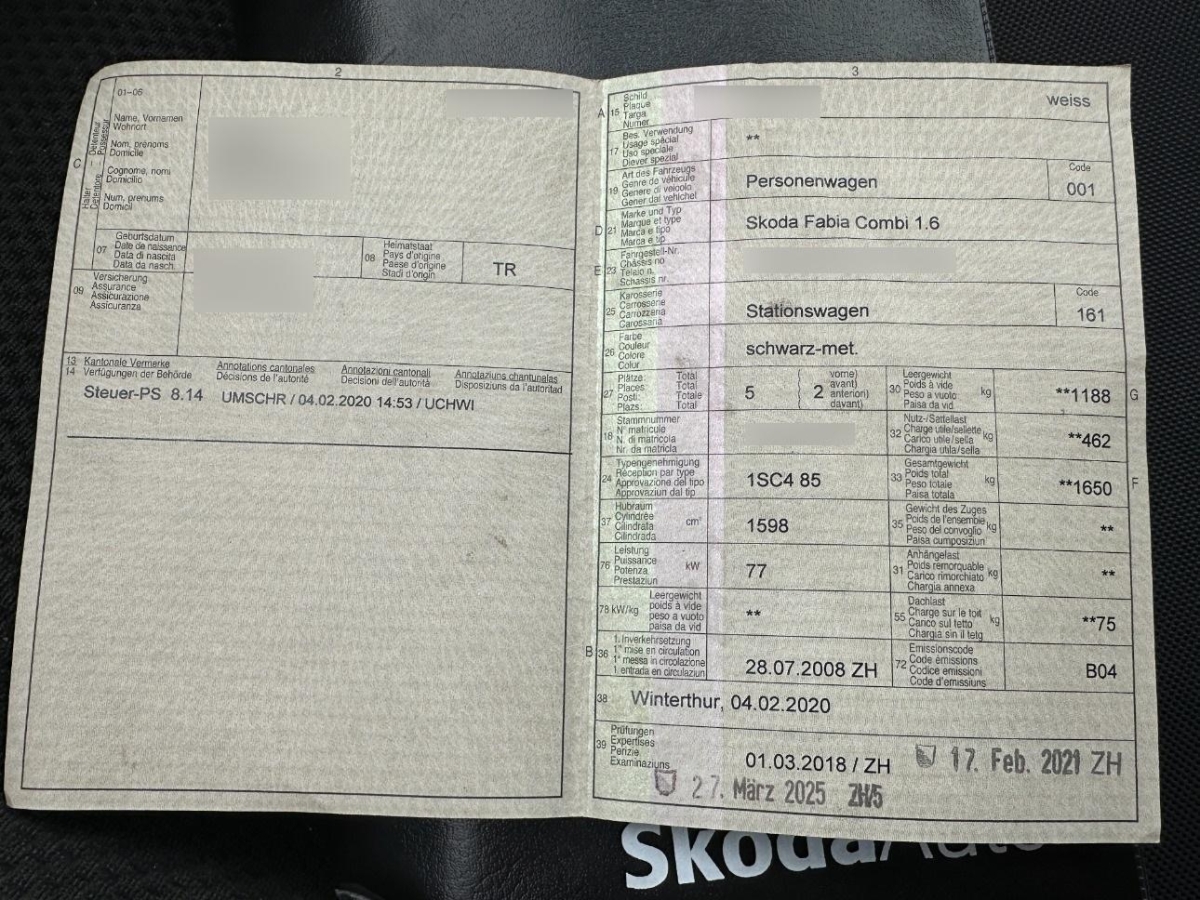 2
01-06
C
Halter
Détenteur
Detentore
Possessur
Name, Vornamen
Wohnort
Nom, prénoms
Domicile
Cognome, nomi
Domicilio
Num, prenums
Domicil
07
Geburtsdatum
Date de naissance
Data di nascita
Data da nasch.
08
Heimatstaat
Pays d'origine
Paese d'origine
Stadi d'origin
TR
09
Versicherung
Assurance
Assicurazione
Assicuranza
13 Kantonale Vermerke Annotations cantonales Annotazioni cantonali Annotaziuns chantunalas
14 Verfügungen der Behörde Décisions de l'autorité Decisioni dell'autorità Disposiziuns da l'autoritad
Steuer-PS 8.14 UMSCHR / 04.02.2020 14:53 / UCHWI
3
A
15
Schild
Plaque
Targa
Numer
weiss
17
Bes. Verwendung
Usage spécial
Uso speciale
Diever spezial
**
19
Art des Fahrzeugs
Genre de véhicule
Genere di veicolo
Gener dal vehichel
Personenwagen
Code
001
D
21
Marke und Typ
Marque et type
Marca e tipo
Marca e tip
Skoda Fabia Combi 1.6
E
23
Fahrgestell-Nr.
Châssis no
Telaio n.
Schassis nr.
25
Karosserie
Carrosserie
Carrozzeria
Carossaria
Stationswagen
Code
161
26
Farbe
Couleur
Colore
Color
schwarz-met.
27
Plätze Total
Places Total
Posti: Totale
Plazs: Total
5
( vorne)
( avant)
( anteriori)
( davant)
2
30
Leergewicht
Poids à vide
Peso a vuoto
Paisa da vid
kg
**1188
G
18
Stammnummer
N° matricule
N. di matricola
Nr. da matricla
32
Nutz-/Sattellast
Charge utile/sellette
Carico utile/sella
Chargia utila/sella
kg
**462
24
Typengenehmigung
Réception par type
Approvazione del tipo
Approvaziun dal tip
1SC4 85
33
Gesamtgewicht
Poids total
Peso totale
Paisa totala
kg
**1650
F
37
Hubraum
Cylindrée
Cilindrata
Cilindrada
cm³
1598
35
Gewicht des Zuges
Poids de l'ensemble
Peso del convoglio
Paisa cumposiziun
kg
**
76
Leistung
Puissance
Potenza
Prestaziun
kW
77
31
Anhängelast
Poids remorquable
Carico rimorchiato
Chargia annexa
kg
**
78 kW/kg
Leergewicht
poids à vide
peso a vuoto
paisa da vid
**
55
Dachlast
Charge sur le toit
Carico sul tetto
Chargia sin il tetg
kg
**75
B
36
1. Inverkehrsetzung
1re mise en circulation
1a messa in circolazione
1. entrada en circulaziun
28.07.2008 ZH
72
Emissionscode
Code émissions
Codice emissioni
Code d'emissiuns
B04
38
Winterthur, 04.02.2020
39
Prüfungen
Expertises
Perizie
Examinaziuns
01.03.2018 / ZH
17. Feb. 2021 ZH
27. März 2025 ZH/5
SkodaAuto